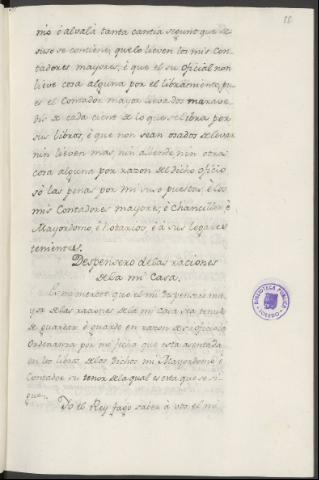 11
mio ó alvalá tanta cantia segunt que de
suso se contiene, que lo lieven los mis Con-
tadores mayores, é que el su oficial non
lieve cosa alguna por el libramiento, pu
es el Contador mayor lieva dos marave
dis de cada ciento de lo que se libra por
sus libros, é que non sean osados de levar
nin lieven mas, nin allende, nin otra
cosa alguna por razon del dicho oficio
só las penas por mi suso puestas, é los
mis Contadores mayores, é Chanciller, é
Mayordomo, é Notarios é á sus logares
tenientes.
Despensero de las raciones
de la mi Casa.
Es mi merced que el mi Despensero ma
yor de las raciones de la mi Casa sea tenudo
de guardar é guarde en razon de su oficio la
Ordenanza por mi fecha que está asentada
en los libros de los dichos mi Mayordomo é
Contador su tenor de la qual es esta que se si-
gue.
Yo el Rey fago saber á vos el mi
BIBLIOTECA PUBLICA
TOLEDO